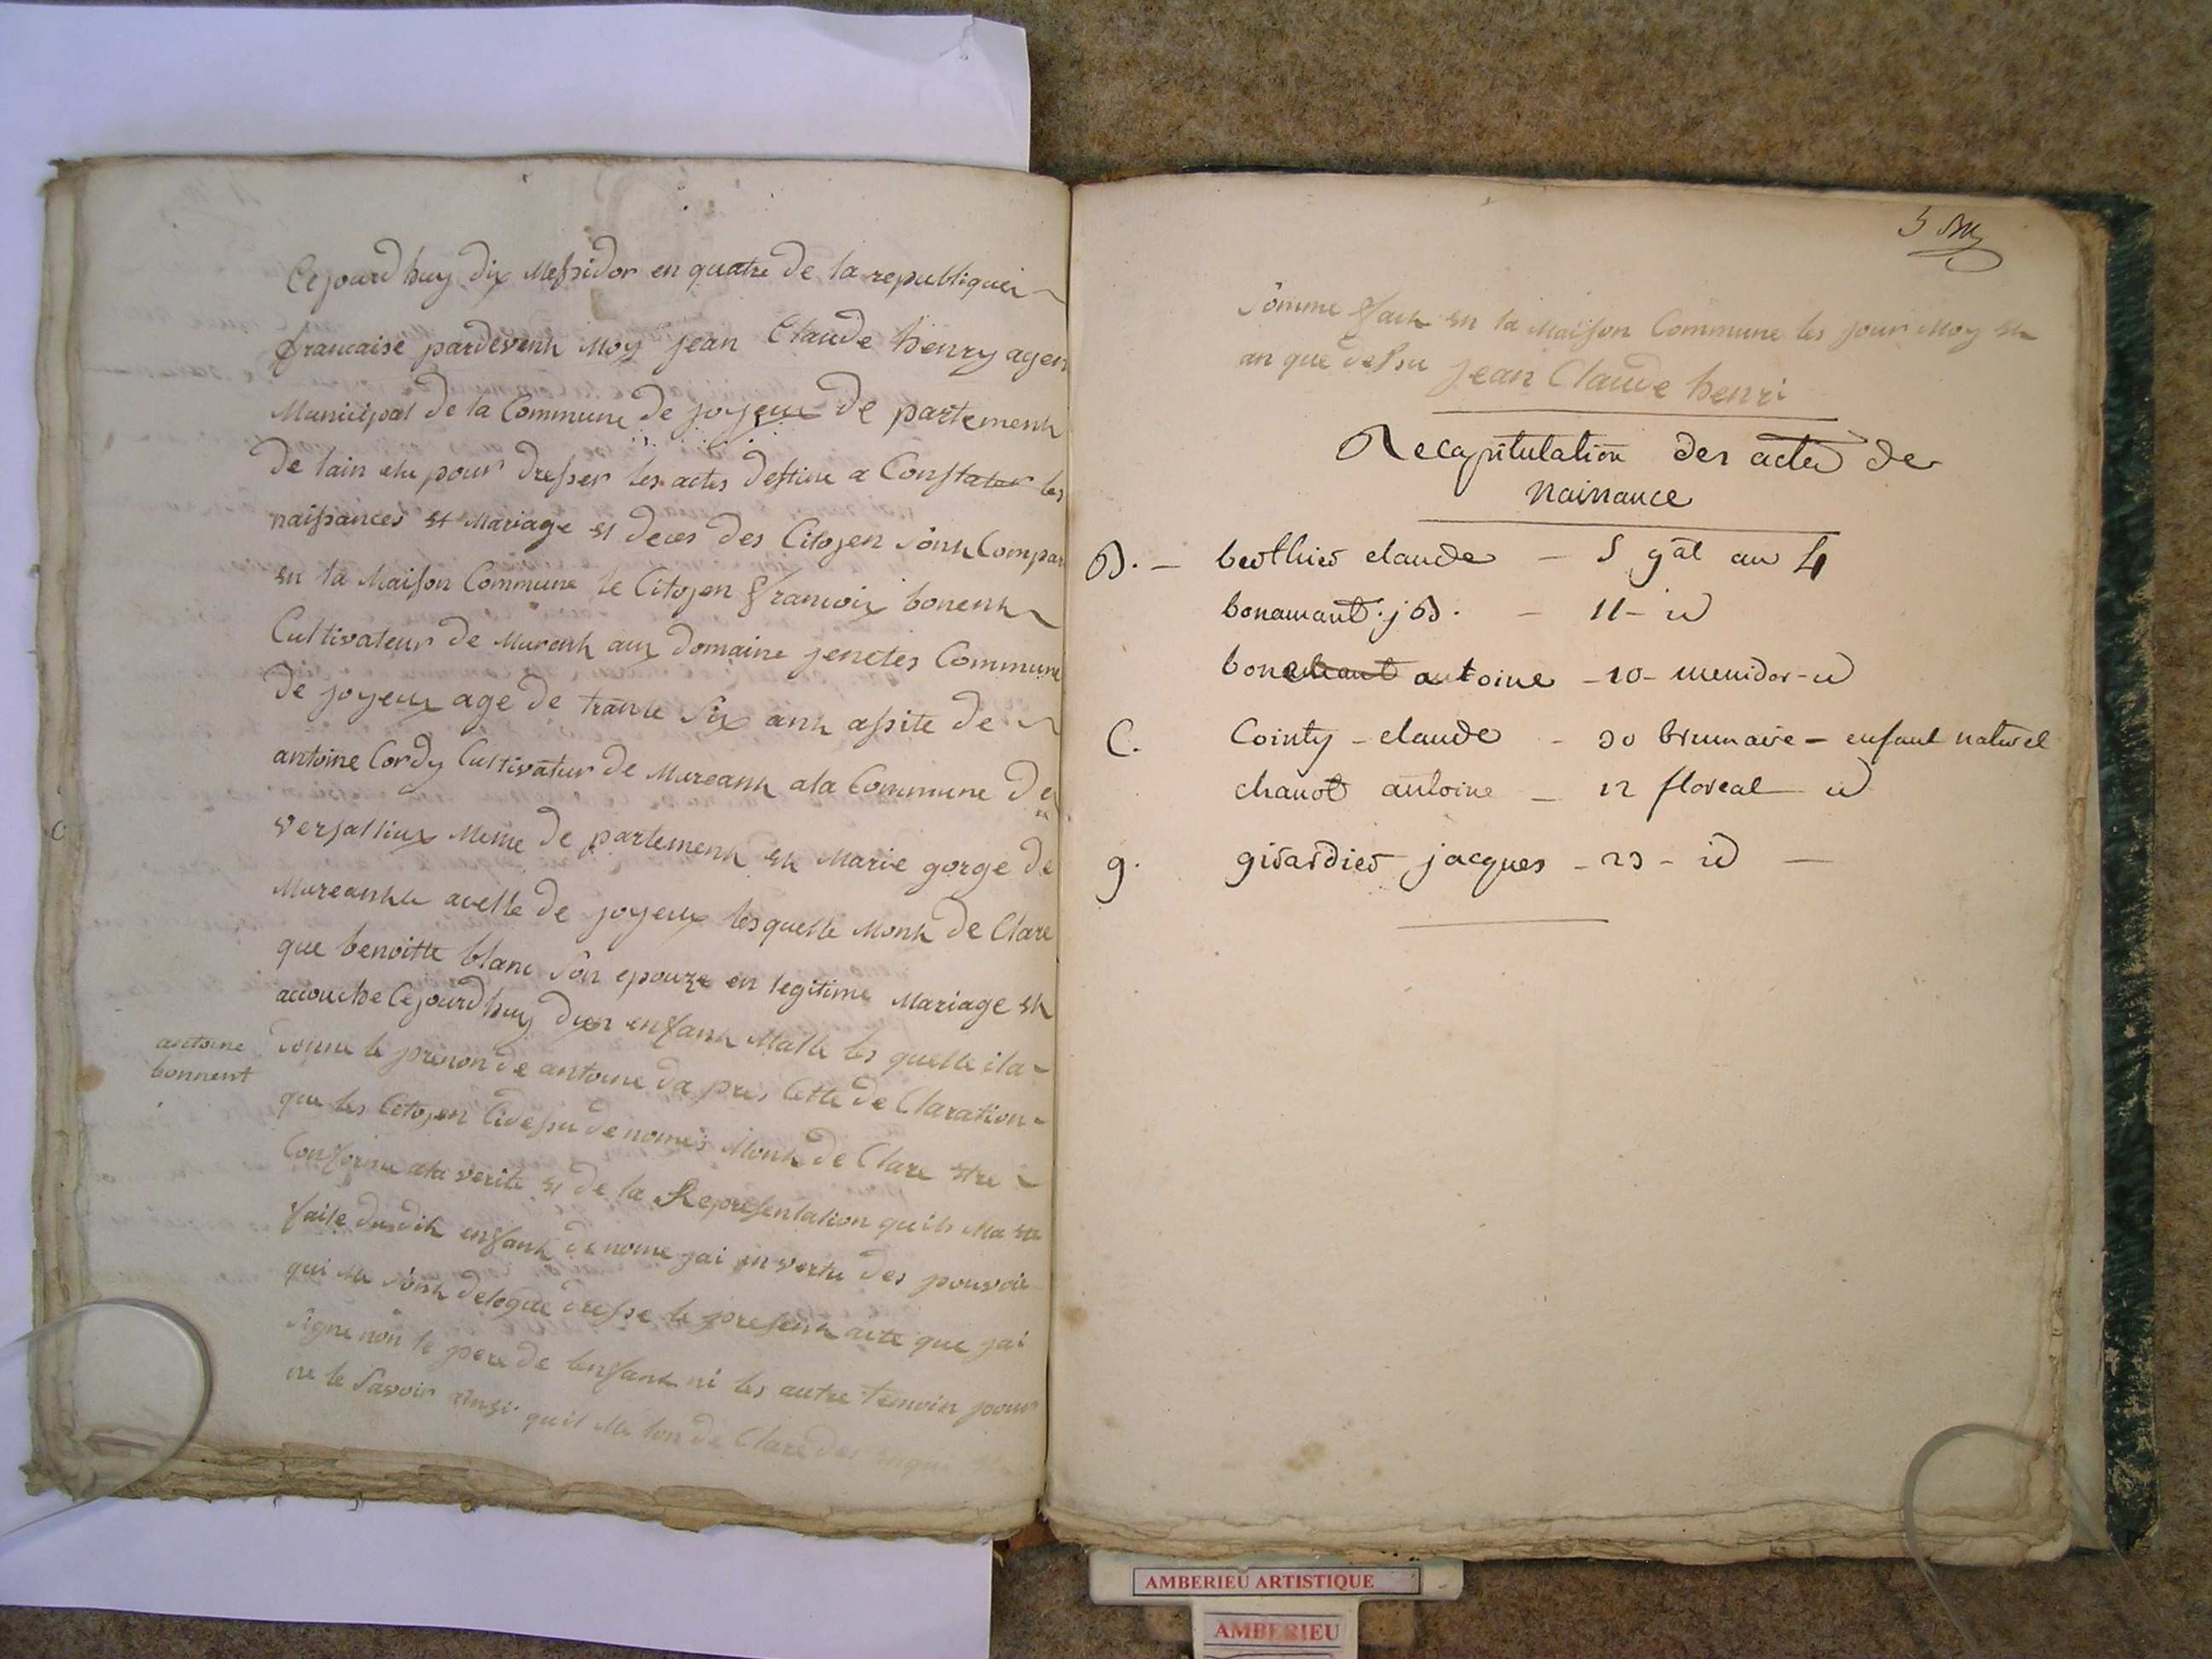 Cejourdhuy dix Messidor en quatre de la republiquei
francaise pardevenk Moy jean Claude henry agen
Municipal de la Commune de joyeux de partemenk
de lain elu pour dresser les actes destine a Constater les
naissances et Mariage et deces des Citoyen sonk Compar
en la Maison Commune le Citoyen francoix bonenk
Cultivateur de Murank aux domaine jenetes Commune
de joyeux age de trante six ank assite de
antoine Cordy Cultivatur de Mureank ala Commune de
versallieux Meme de partemenk ek Marie gorge de
Mureank avelle de joyeux lesquelle Monk de Clare
que benoitte blanc son epouze en legitime Mariage ek
accouche Cejourdhuy dun enfank Malle les quelle ila
antoine
bonnent
donne le prenon de antoine da pres Cette de Claration
que les Citoyen Cidessu denomes Monk de Clare etre
Conforme ala verite et de la Representation quils Ma ete
faite dudik enfank denome jai en vertu des pouvoir
qui Me sonk delegue dresse le presenk acte que jai
signe non le pere de lenfank ni les autre temoin pour
ne le Savoir ainsi quil Me lon de Clare des
3
Somme fack en la Maison Commune les jour Moy ek
an que dessu jean Claude henri
Recapitulation des actes de
Naissance
B. - berthier claude - 5 gal an 4
bonamant j B. - 11 - id
bonenant antoine - 10 - messidor - id
C. Cointy - claude - 30 brumaire - enfant naturel
chanot antoine - 12 floreal id
g. girardier jacques - 23 - id -
AMBERIEU ARTISTIQUE
AMBERIEU